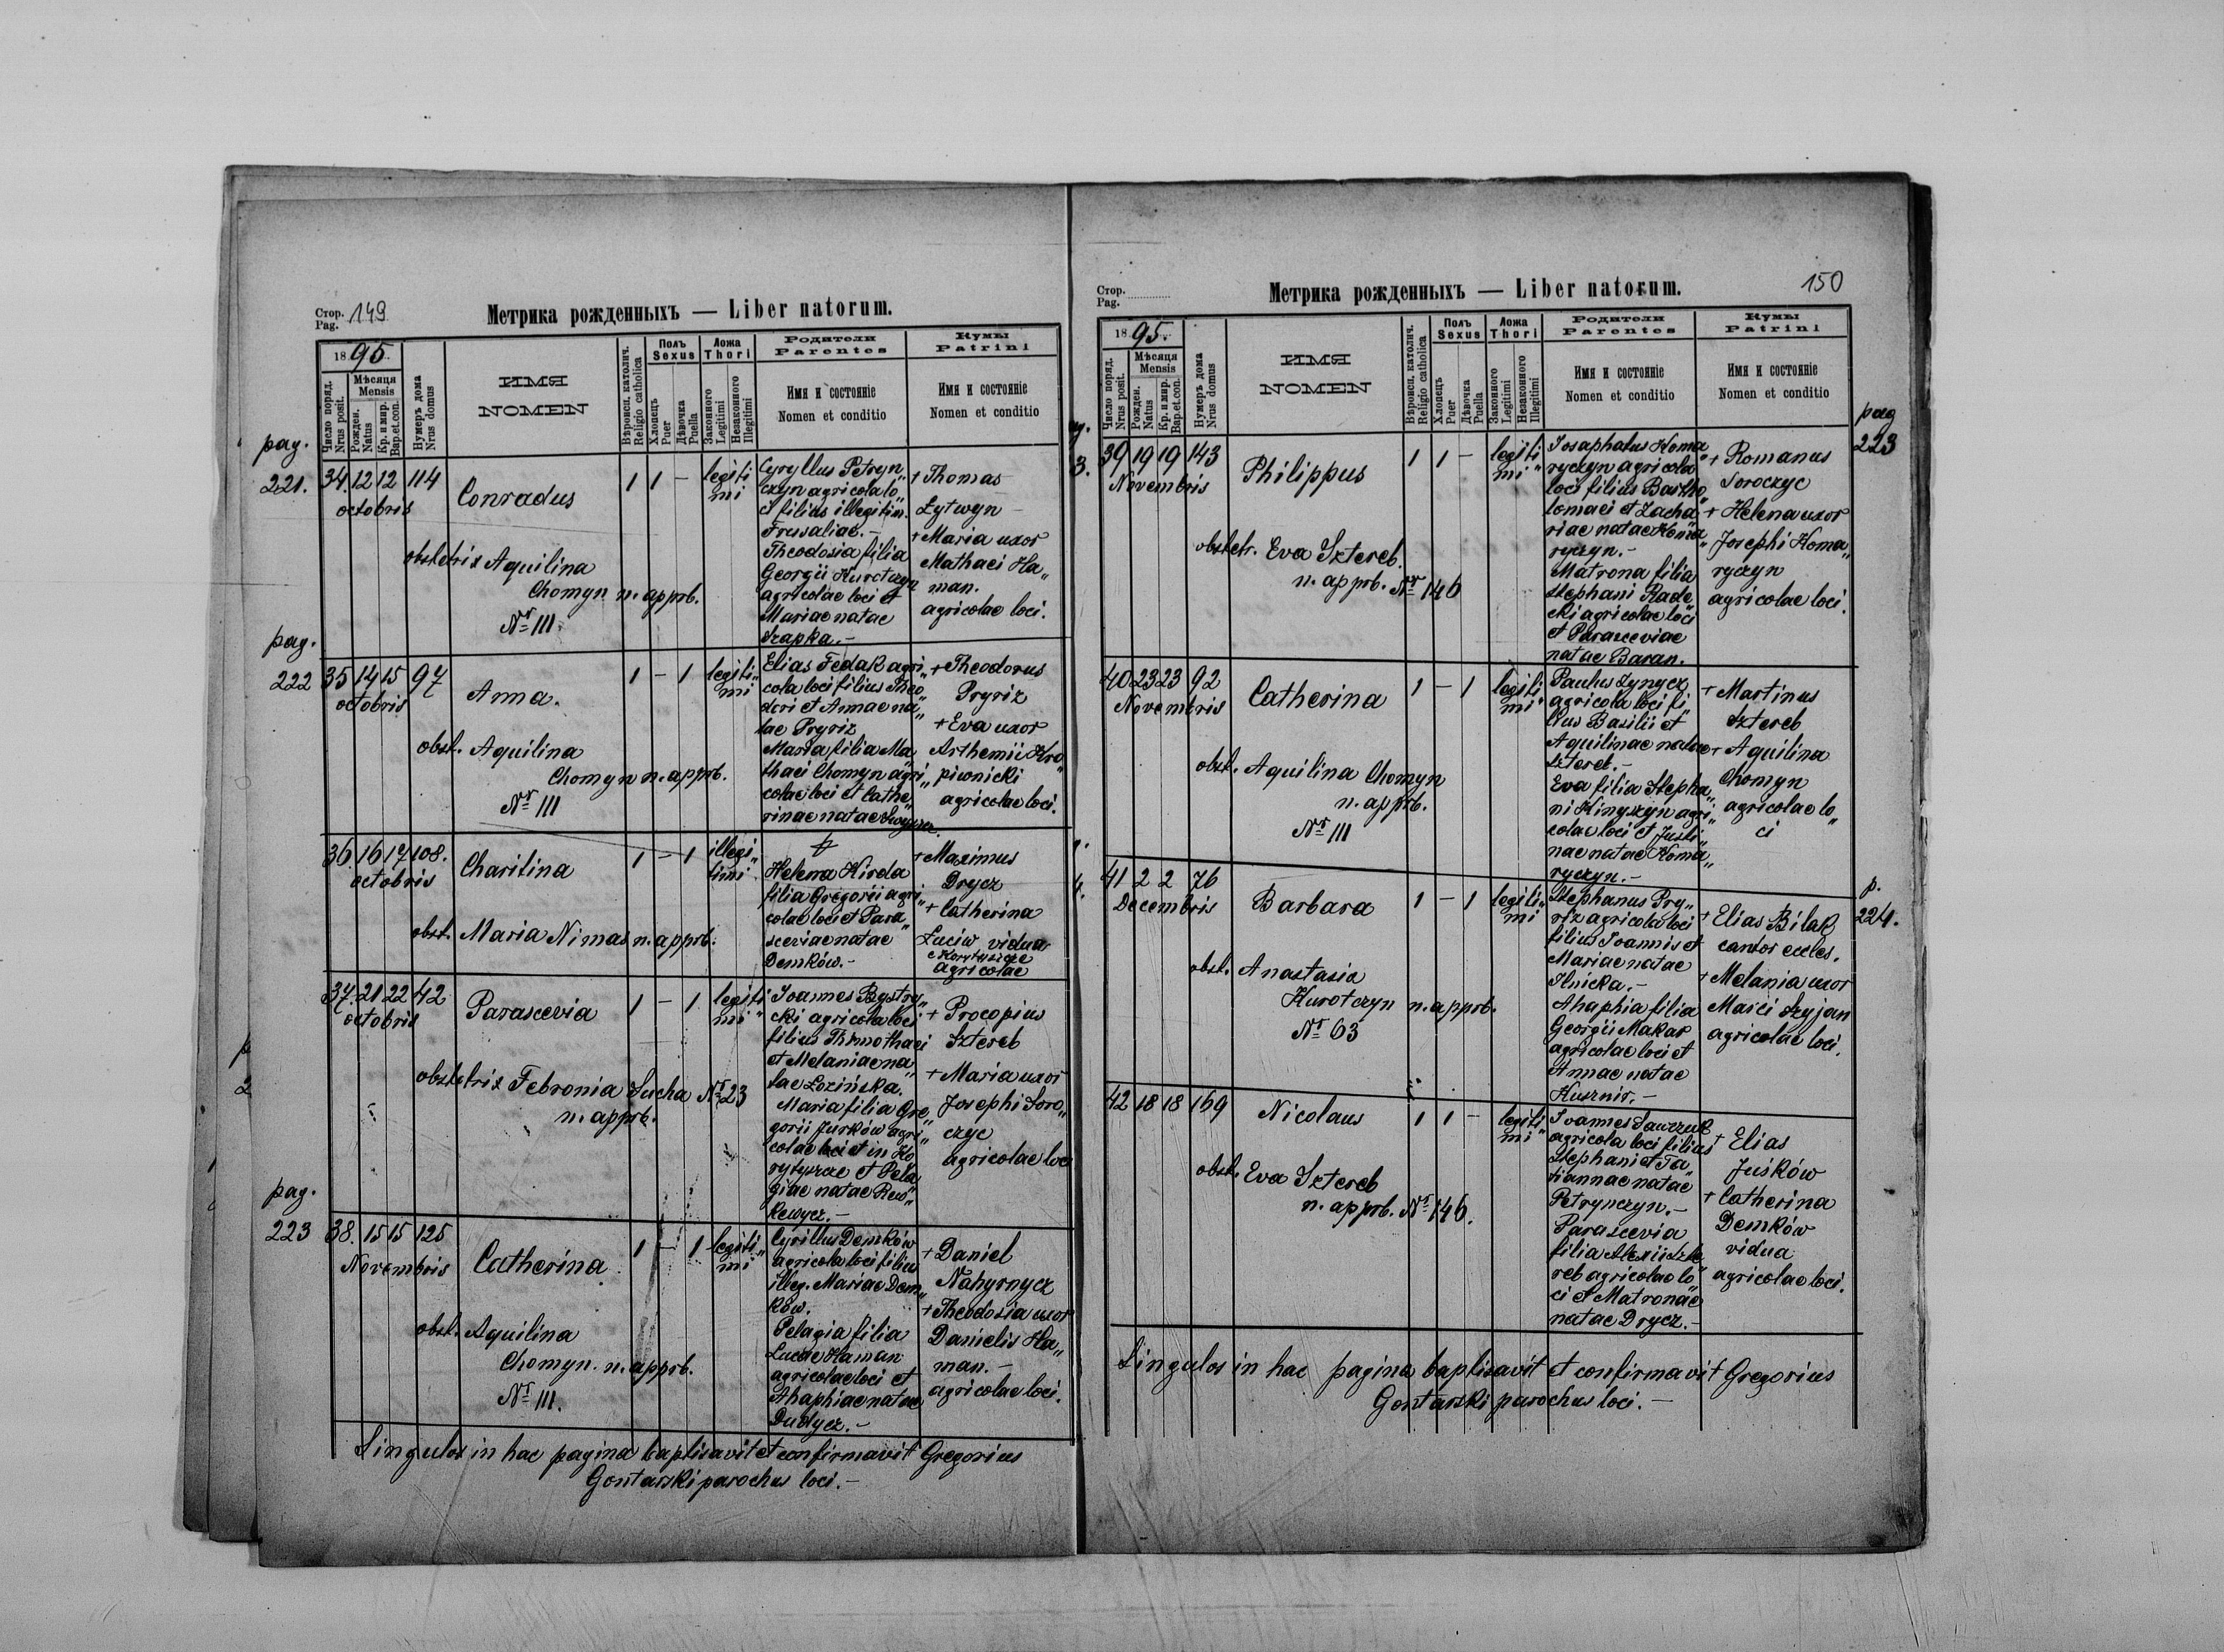 Стор. Pag. 149
Метрика рожденныхъ — Liber natorum.
1895.
Число поряд. Nrus posit.
Мѣсяця Mensis
Рожден. Natus
Кр. и мир. Bap. et. con.
Нумеръ дома Nrus domus
ИМЯ
NOMEN
Вѣроисп. католич. Religio catholica
Полъ Sexus
Хлопецъ Puer
Дѣвочка Puella
Ложа Thori
Законного Legitimi
Незаконного Illegitimi
Родители
Parentes
Имя и состояніе
Nomen et conditio
Кумы
Patrini
Имя и состояніе
Nomen et conditio
pag.
221.
34. 12 12 114
octobris
Conradus
1 1 —
legiti
mi
obstetrix Aquilina
Chomyn n. approb.
Nr III.
Cyryllus Petryn„
czyn agricola lo„
ci filius illegitim.
Theodosia filia
Georgii Kurotczyn
agricolae loci et
Mariae natae
Szapka.—
+ Thomas
Łytwyn
+ Maria uxor
Mathaei Ha„
man.
agricolae loci.
pag.
222
35 14 15 97
octobris
Anna.
1 — 1
legiti„
mi
obst. Aquilina
Chomyn n. approb.
Nr III
Elias Fedak agri„
cola loci filius Theo„
dori et Annae na„
tae Pryriz
Maria filia Ma„
thaei Chomyn agri„
colae loci et Cathe„
rinae natae
+ Theodorus
Pryriz
+ Eva uxor
Arthemii Kro„
piwnicki
agricolae loci.
36. 16 17 108.
octobris
Charitina
1 — 1
illegi„
timi
obst. Maria Nimas n. approb.
Helena Hirda
filia Gregorii agri„
colae loci et Para„
sceviae natae
Demków.—
+ Maximus
Drycz
+ Catherina
Łuciw vidua
agricolae
37. 21 22 42
octobris
Parascevia
1 — 1
legiti„
mi
obstetrix Febronia Sucha Nr 23
n. approb.
Joannes Bystry„
cki agricola loci
filius Thimothaei
et Melaniae na„
tae Łozińska.
Maria filia Gre„
gorii Jurków agri„
colae loci et in Ko„
rytyszcze et Pela„
giae natae Rew„
kewycz.—
+ Procopius
Sztereb
+ Maria uxor
Josephi Soro„
czyc
agricolae loci
pag.
223
38. 15 15 125
Novembris
Catherina
1 — 1
legiti„
mi
obst. Aquilina
Chomyn. n. approb.
Nr III.
Cyrillus Demków
agricola loci filius
illeg. Mariae Dem„
ków.
Pelagia filia
Lucae Haman
agricolae loci et
Ahaphiae natae
Dudycz.—
+ Daniel
Nahyrnycz
+ Theodosia uxor
Danielis Ha„
man.—
agricolae loci.
Singulos in hac pagina baptisavit et confirmavit Gregorius
Gontarski parochus loci.—
Стор. Pag.
Метрика рожденныхъ — Liber natorum.
150
1895.
Число поряд. Nrus posit.
Мѣсяця Mensis
Рожден. Natus
Кр. и мир. Bap. et. con.
Нумеръ дома Nrus domus
ИМЯ
NOMEN
Вѣроисп. католич. Religio catholica
Полъ Sexus
Хлопецъ Puer
Дѣвочка Puella
Ложа Thori
Законного Legitimi
Незаконного Illegitimi
Родители
Parentes
Имя и состояніе
Nomen et conditio
Кумы
Patrini
Имя и состояніе
Nomen et conditio
pag
223
39 19 19 143
Novembris
Philippus
1 1 —
legiti
mi„
obstetr. Eva Sztereb.
n. approb. Nr 146
Josaphatus Homa„
ryczyn agricola
loci filius Bartho„
lomaei et Zacha„
riae natae Homa„
ryczyn.—
Matrona filia
Stephani Rade„
cki agricolae loci
et Parasceviae
natae Baran.
+ Romanus
Soroczyc
+ Helena uxor
Josephi Homa„
ryczyn
agricolae loci.
40 23 23 92
Novembris
Catherina
1 — 1
legiti
mi„
obst. Aquilina Chomyn
n. approb.
Nr III
Paulus Łynycz
agricola loci fi„
lius Basilii et
Aquilinae natae
Sztereb.—
Eva filia Stepha„
ni Hinyczyn agri„
colae loci et Justi„
nae natae Homa„
ryczyn.—
+ Martinus
Sztereb
+ Aquilina
Chomyn
agricolae lo„
ci
p.
224.
41 2 2 76
Decembris
Barbara
1 — 1
legiti„
mi
obst. Anastasia
Kurotczyn n. approb.
Nr 63
Stephanus Pry„
riz agricola loci
filius Joannis et
Mariae natae
Ilnicka.—
Ahaphia filia
Georgii Makar
agricolae loci et
Annae natae
Kusznir.—
+ Elias Bilak
cantor eccles.
+ Melania uxor
Marci Szyjan
agricolae loci.
42 18 18 169
Nicolaus
1 1 —
legiti„
mi
obst. Eva Sztereb
n. approb. Nr 146.
Joannes Sawczuk
agricola loci filius
Stephani et Ta„
tiannae natae
Petrynczyn.—
Parascevia
filia Alexii Szte„
reb agricolae lo„
ci et Matronae
natae Drycz.—
+ Elias
Juśków
+ Catherina
Demków
vidua
agricolae loci.
Singulos in hac pagina baptisavit et confirmavit Gregorius
Gontarski parochus loci.—